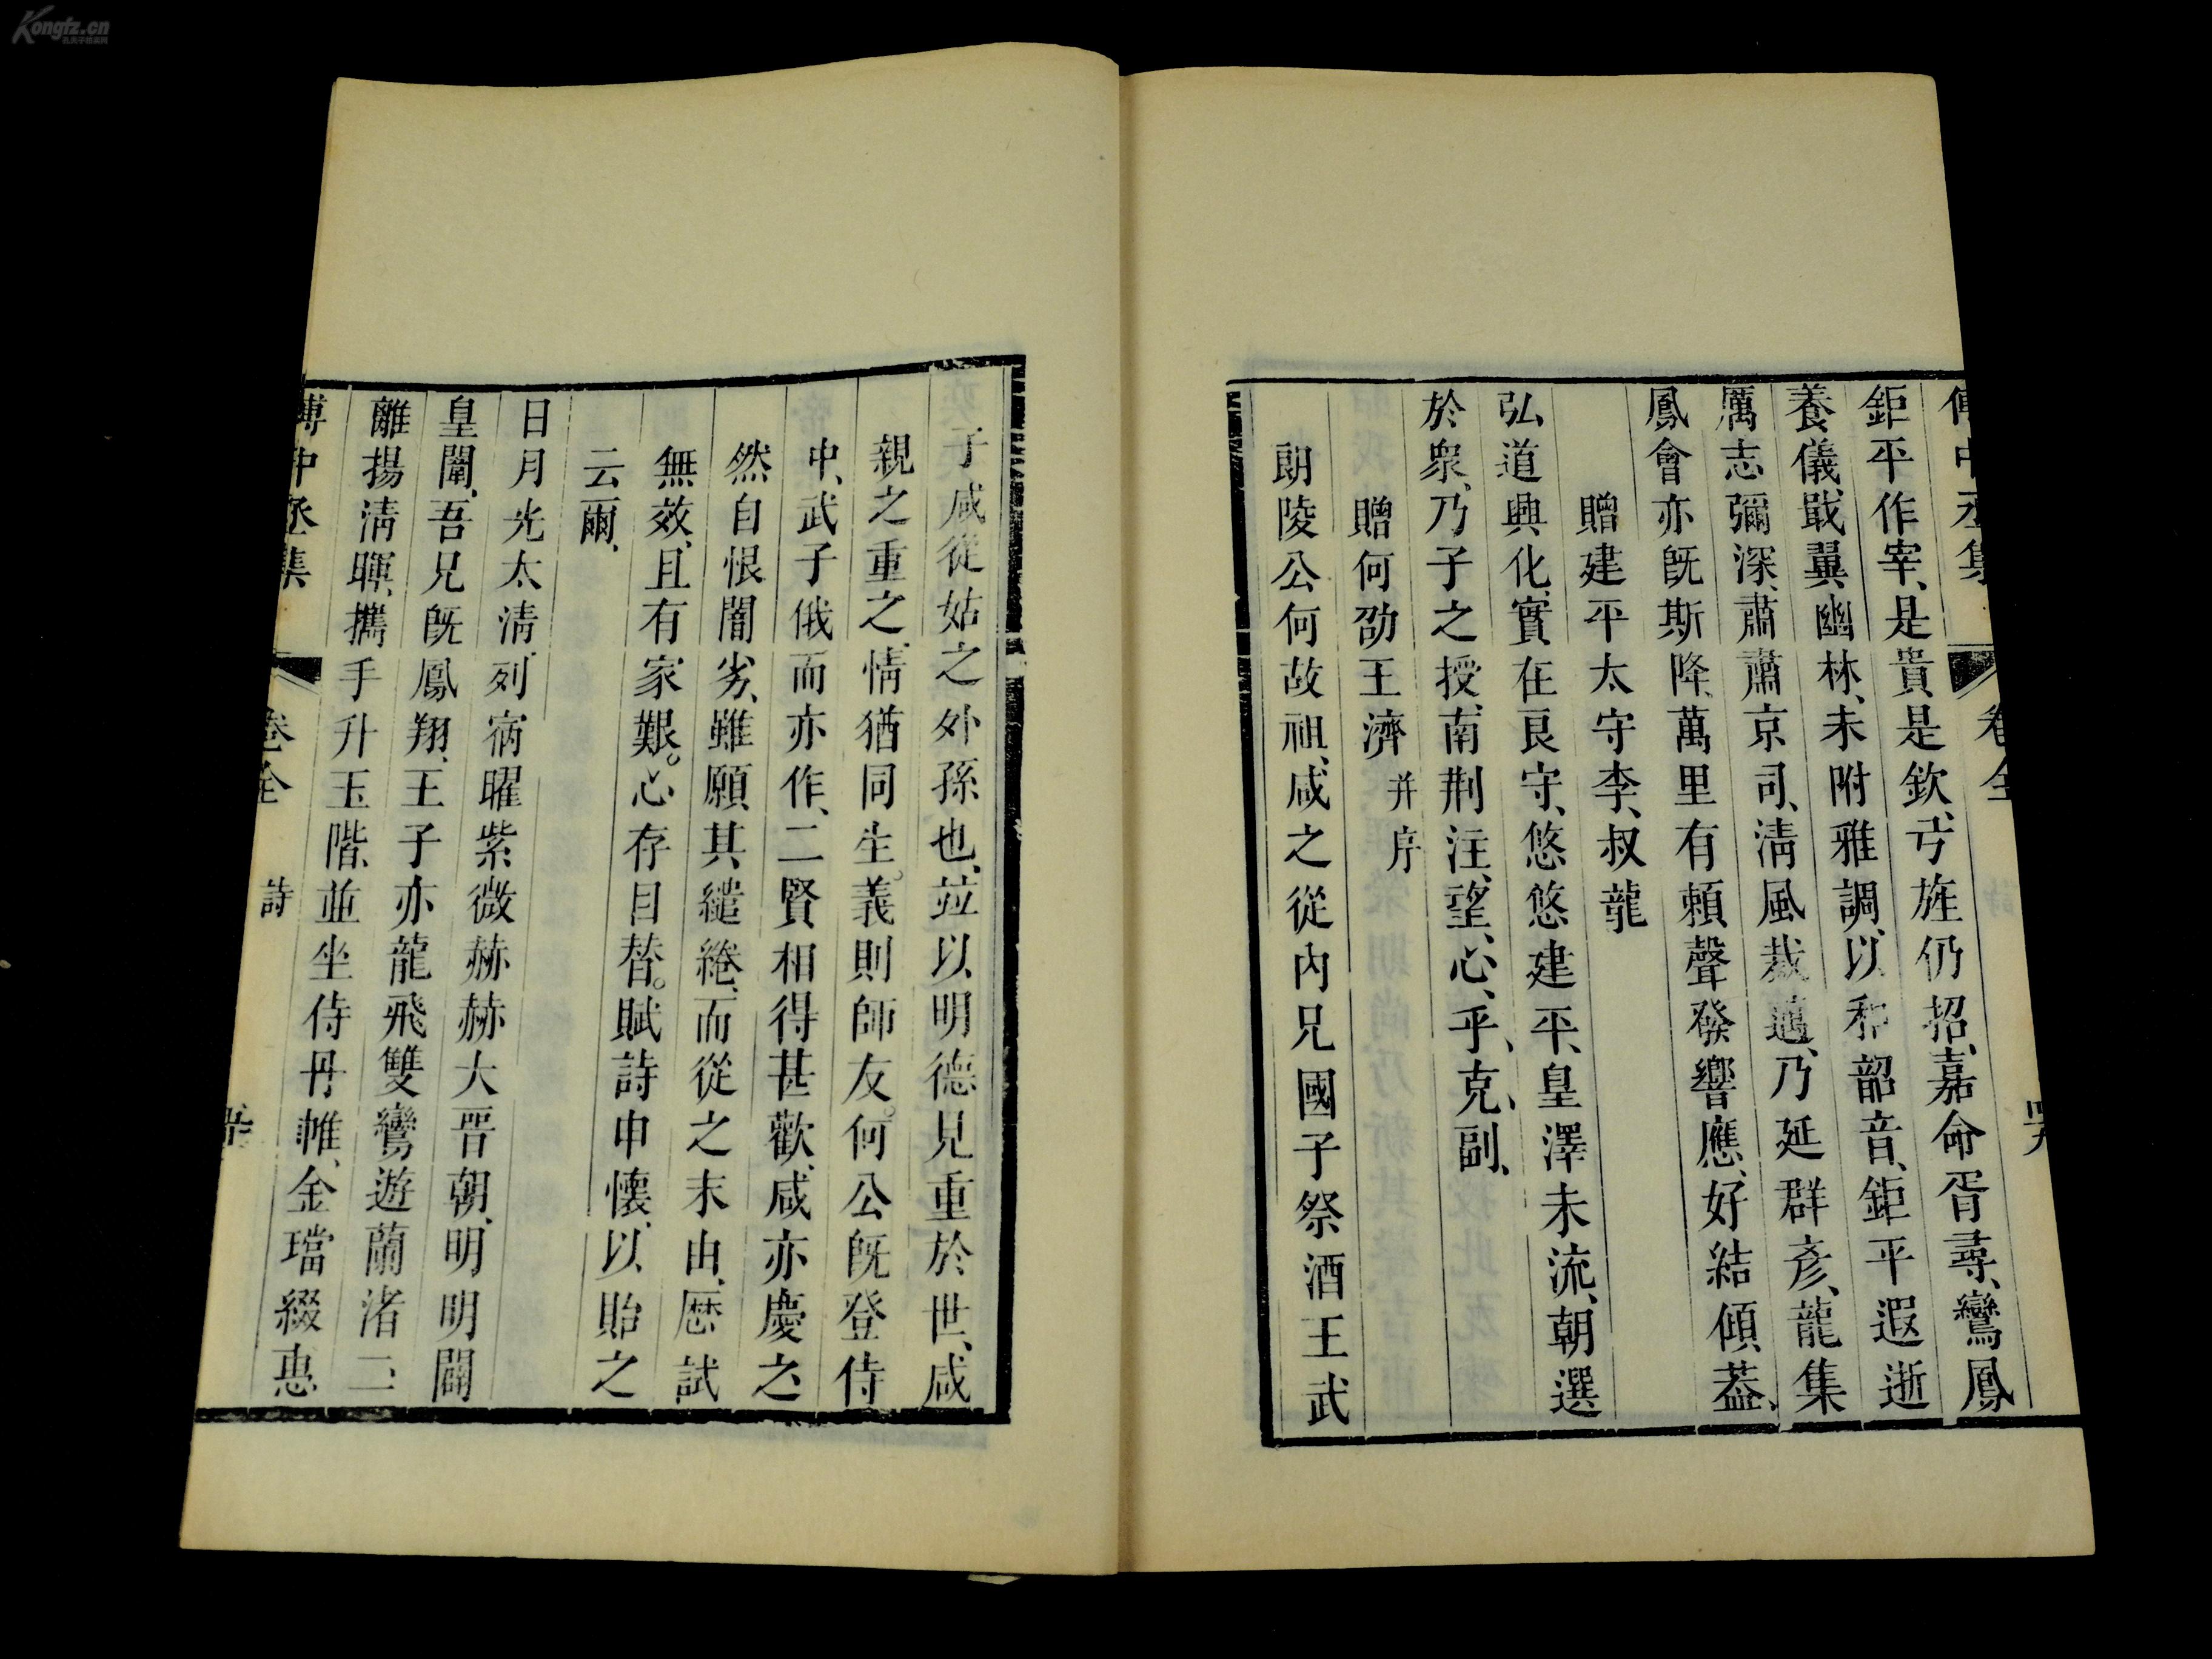 Kongfz.cn
傅中丞集 卷全 四九
鉅平作宰、是貴是欽、弓旌仍招、嘉命胥尋、鸞鳳
養儀、戢翼幽林、未附雅調、以和韶音、鉅平遐逝
厲志彌深、肅肅京司、清風裁邁、乃延群彥、龍集
鳳會亦旣斯降、萬里有賴聲發響應、好結傾葢、
贈建平太守李、叔龍
弘道興化、實在良守、悠悠建平、皇澤未流、朝選
於衆、乃子之授、南荆注、望、心、乎、克、副、
贈何劭王濟 并序
朗陵公何故祖、咸之從内兄國子祭酒王武
子咸從姑之外孫也、竝以明德見重於世、咸
親之重之、情猶同生。義則師友。何公旣登侍
中、武子俄而亦作、二賢相得甚歡、咸亦慶之、
然自恨闇劣、雖願其繾綣、而從之末由、歷試
無效、且有家艱。心存目替。賦詩申懷、以貽之
云爾、
日月光太清、列宿曜紫微赫赫大晉朝、明明闢
皇闈、吾兄旣鳳翔、王子亦龍飛雙鸞遊蘭渚二
離揚清暉、攜手升玉階、並坐侍丹帷、金璫綴惠
傅中丞集 卷全 詩